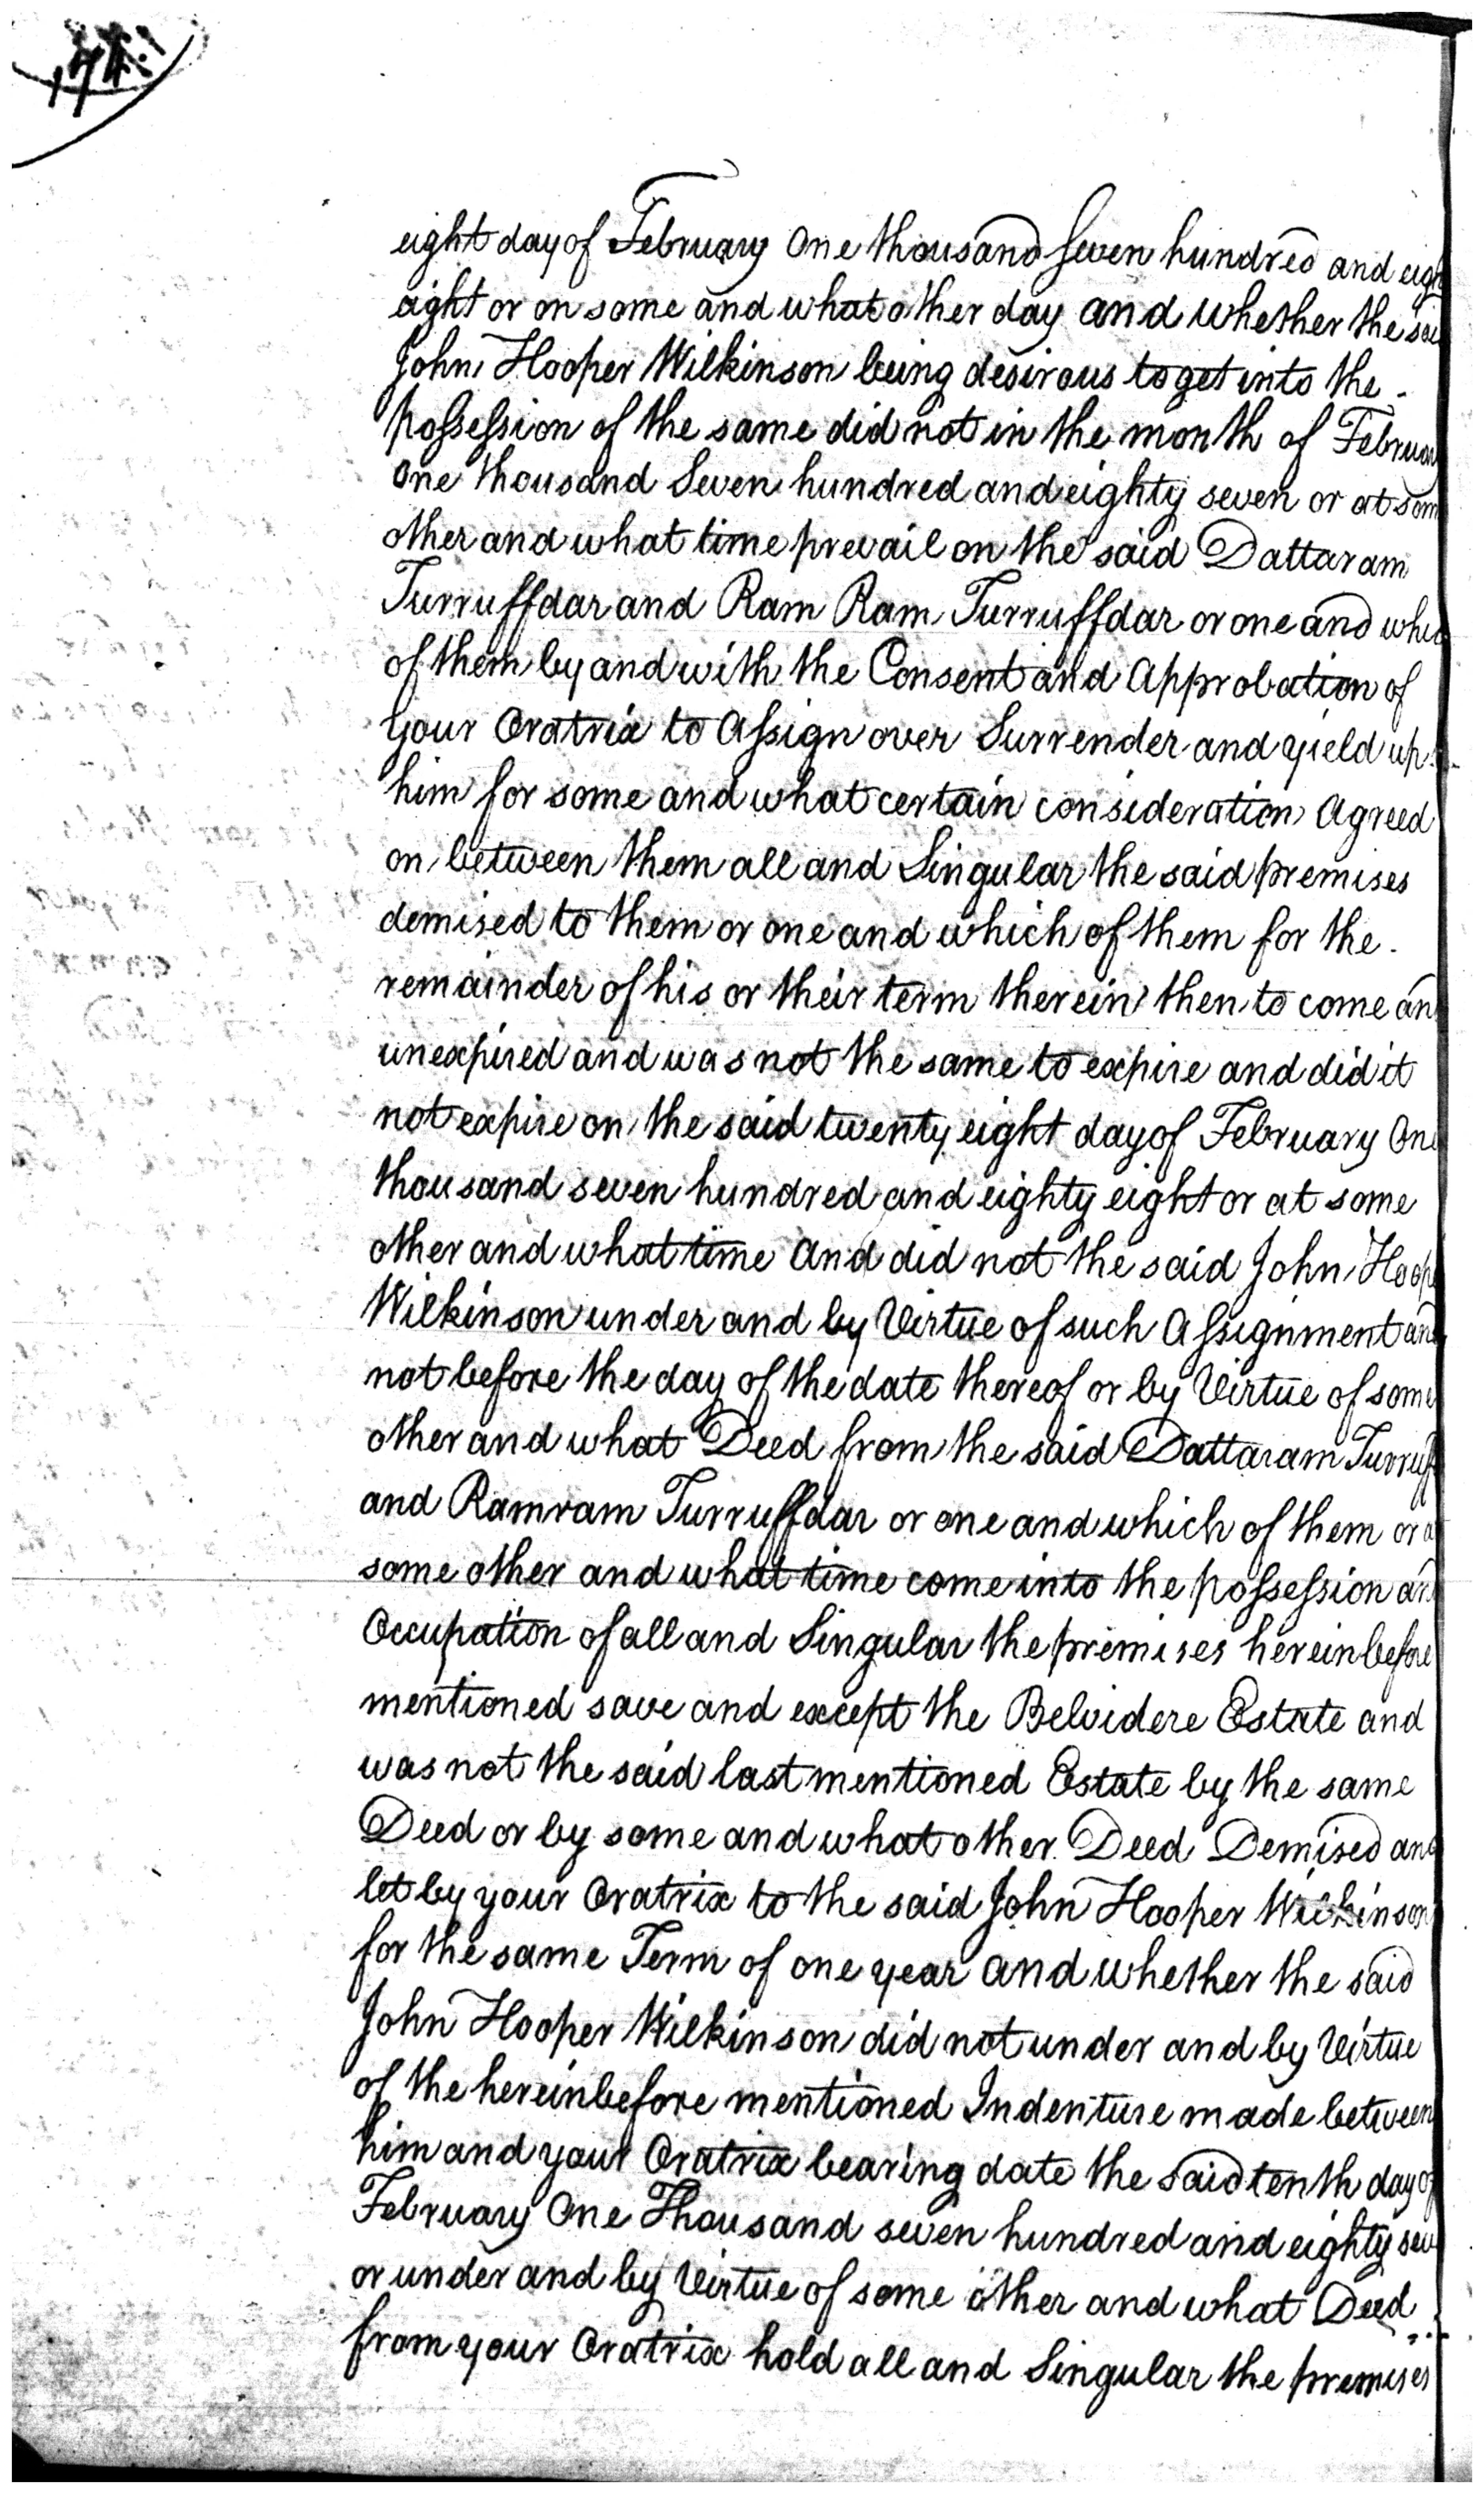 eight day of February One thousand Seven hundred and eigh
eight or on some and what other day and whether the sai
John Hooper Wilkinson being desirous to get into the -
possession of the same did not in the month of Februar
One thousand Seven hundred and eighty seven or at som
other and what time prevail on the said Dattaram
Turruffdar and Ram Ram Turruffdar or one and whic
of them by and with the Consent and Approbation of
Your Oratrix to Assign over Surrender and yield up
him for some and what certain consideration Agreed
on between them all and Singular the said premises
demised to them or one and which of them for the -
remainder of his or their term therein then to come an
unexpired and was not the same to expire and did it
not expire on the said twenty eight day of February One
thousand seven hundred and eighty eight or at some
other and what time and did not the said John Hoope
Wilkinson under and by Virtue of such Assignment and
not before the day of the date thereof or by Virtue of some
other and what Deed from the said Dattaram Turruff
and Ramram Turruffdar or one and which of them or a
some other and what time come into the possession an
Occupation of all and Singular the premises hereinbefore
mentioned save and except the Belvidere Estate and
was not the said last mentioned Estate by the same
Deed or by some and what other Deed Demised and
let by your Oratrix to the said John Hooper Wilkinson
for the same Term of one year and whether the said
John Hooper Wilkinson did not under and by Virtue
of the hereinbefore mentioned Indenture made between
him and your Oratrix bearing date the said tenth day of
February One Thousand seven hundred and eighty sev
or under and by Virtue of some other and what Deed
from your Oratrix hold all and Singular the premises